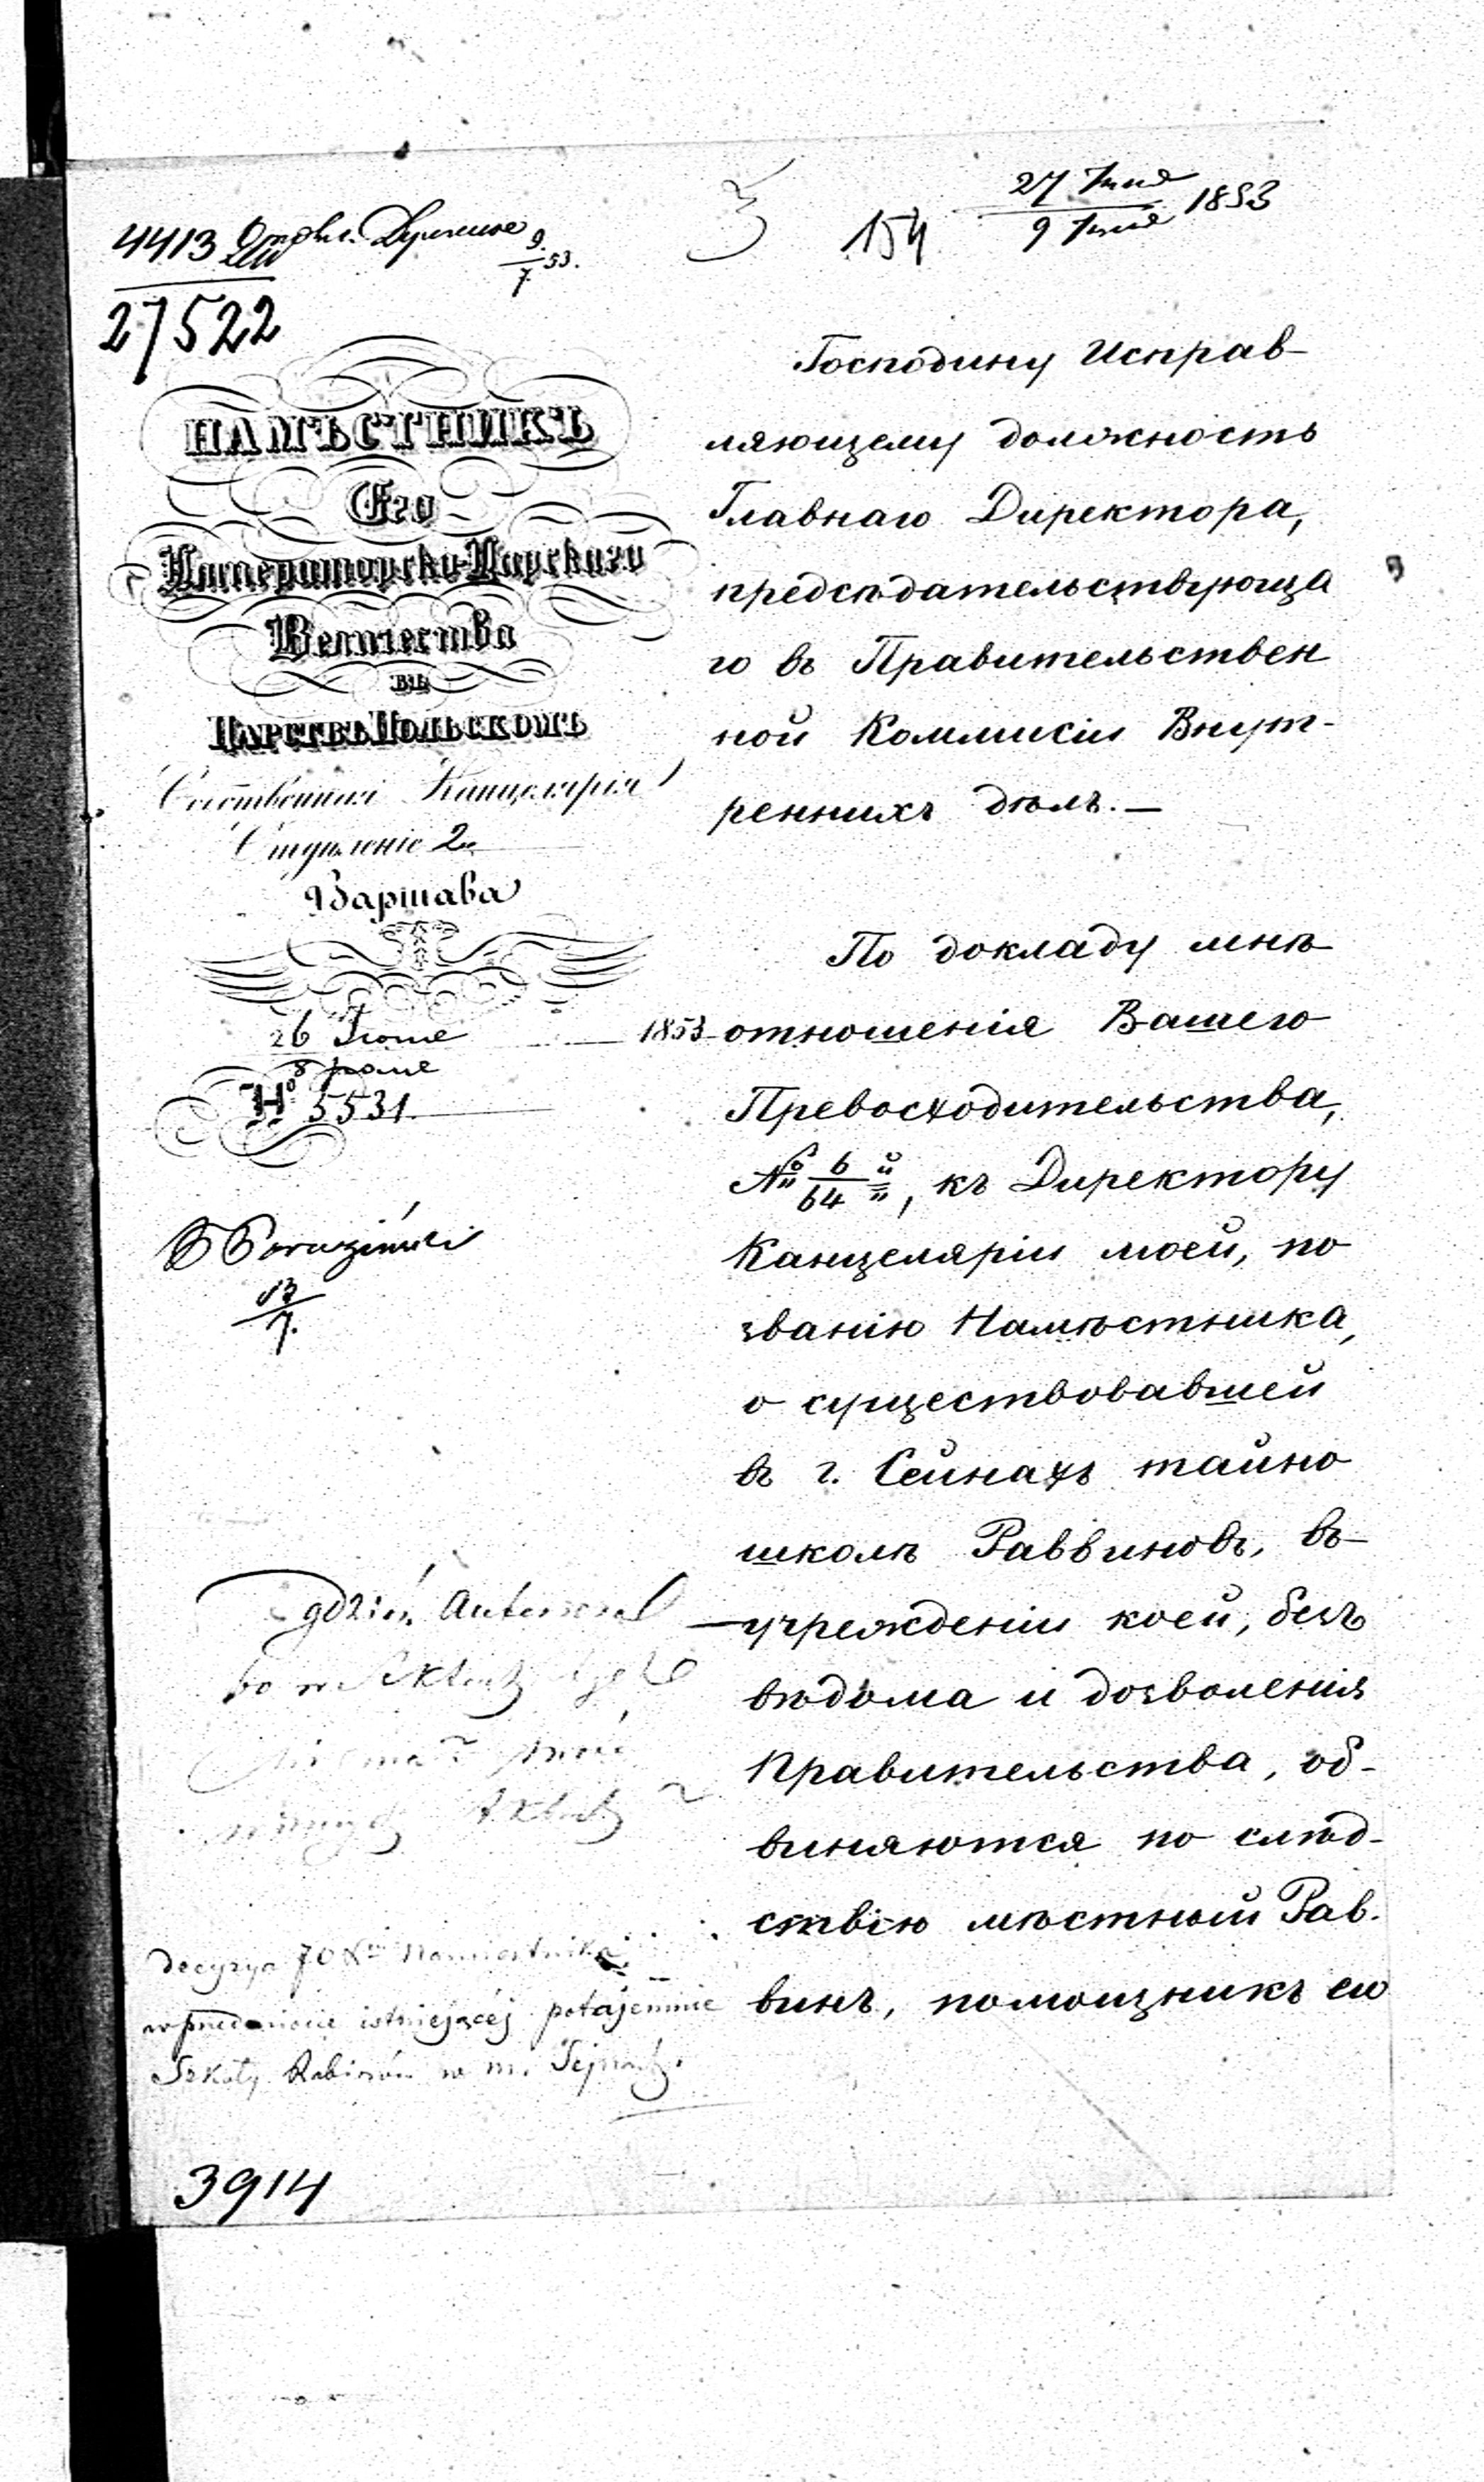 154
27 Іюня
9 Іюля 1853
4413
9/7 53.
27522
НАМѢСТНИКЪ
Его
Императорско-Царскаго
Величества
въ
Царствѣ Польскомъ
Собственная Канцелярія
Отдѣленіе 2е
Варшава
26 Іюня
8 Іюля 1853
№ 5531
13/7.
Господину Исправ-
ляющему должность
Главнаго Директора,
предсѣдательствующа
го въ Правительствен
ной Коммисіи Внут-
реннихъ дѣлъ. —
По докладу мнѣ
отношенія Вашего
Превосходительства,
№ 6/64 й, къ Директору
Канцеляріи моей, по
званію Намѣстника,
о существовавшей
въ г. Сейнахъ тайно
школѣ Раввиновъ, въ
учрежденіи коей, безъ
вѣдома и дозволенія
Правительства, об-
виняются по слѣд-
ствію мѣстный Рав-
винъ, помощникъ его
Decyzya JO Xcia Namiestnika
w przedmiocie istniejącej potajemnie
Szkoły Rabinów w m. Sejnach.
3914